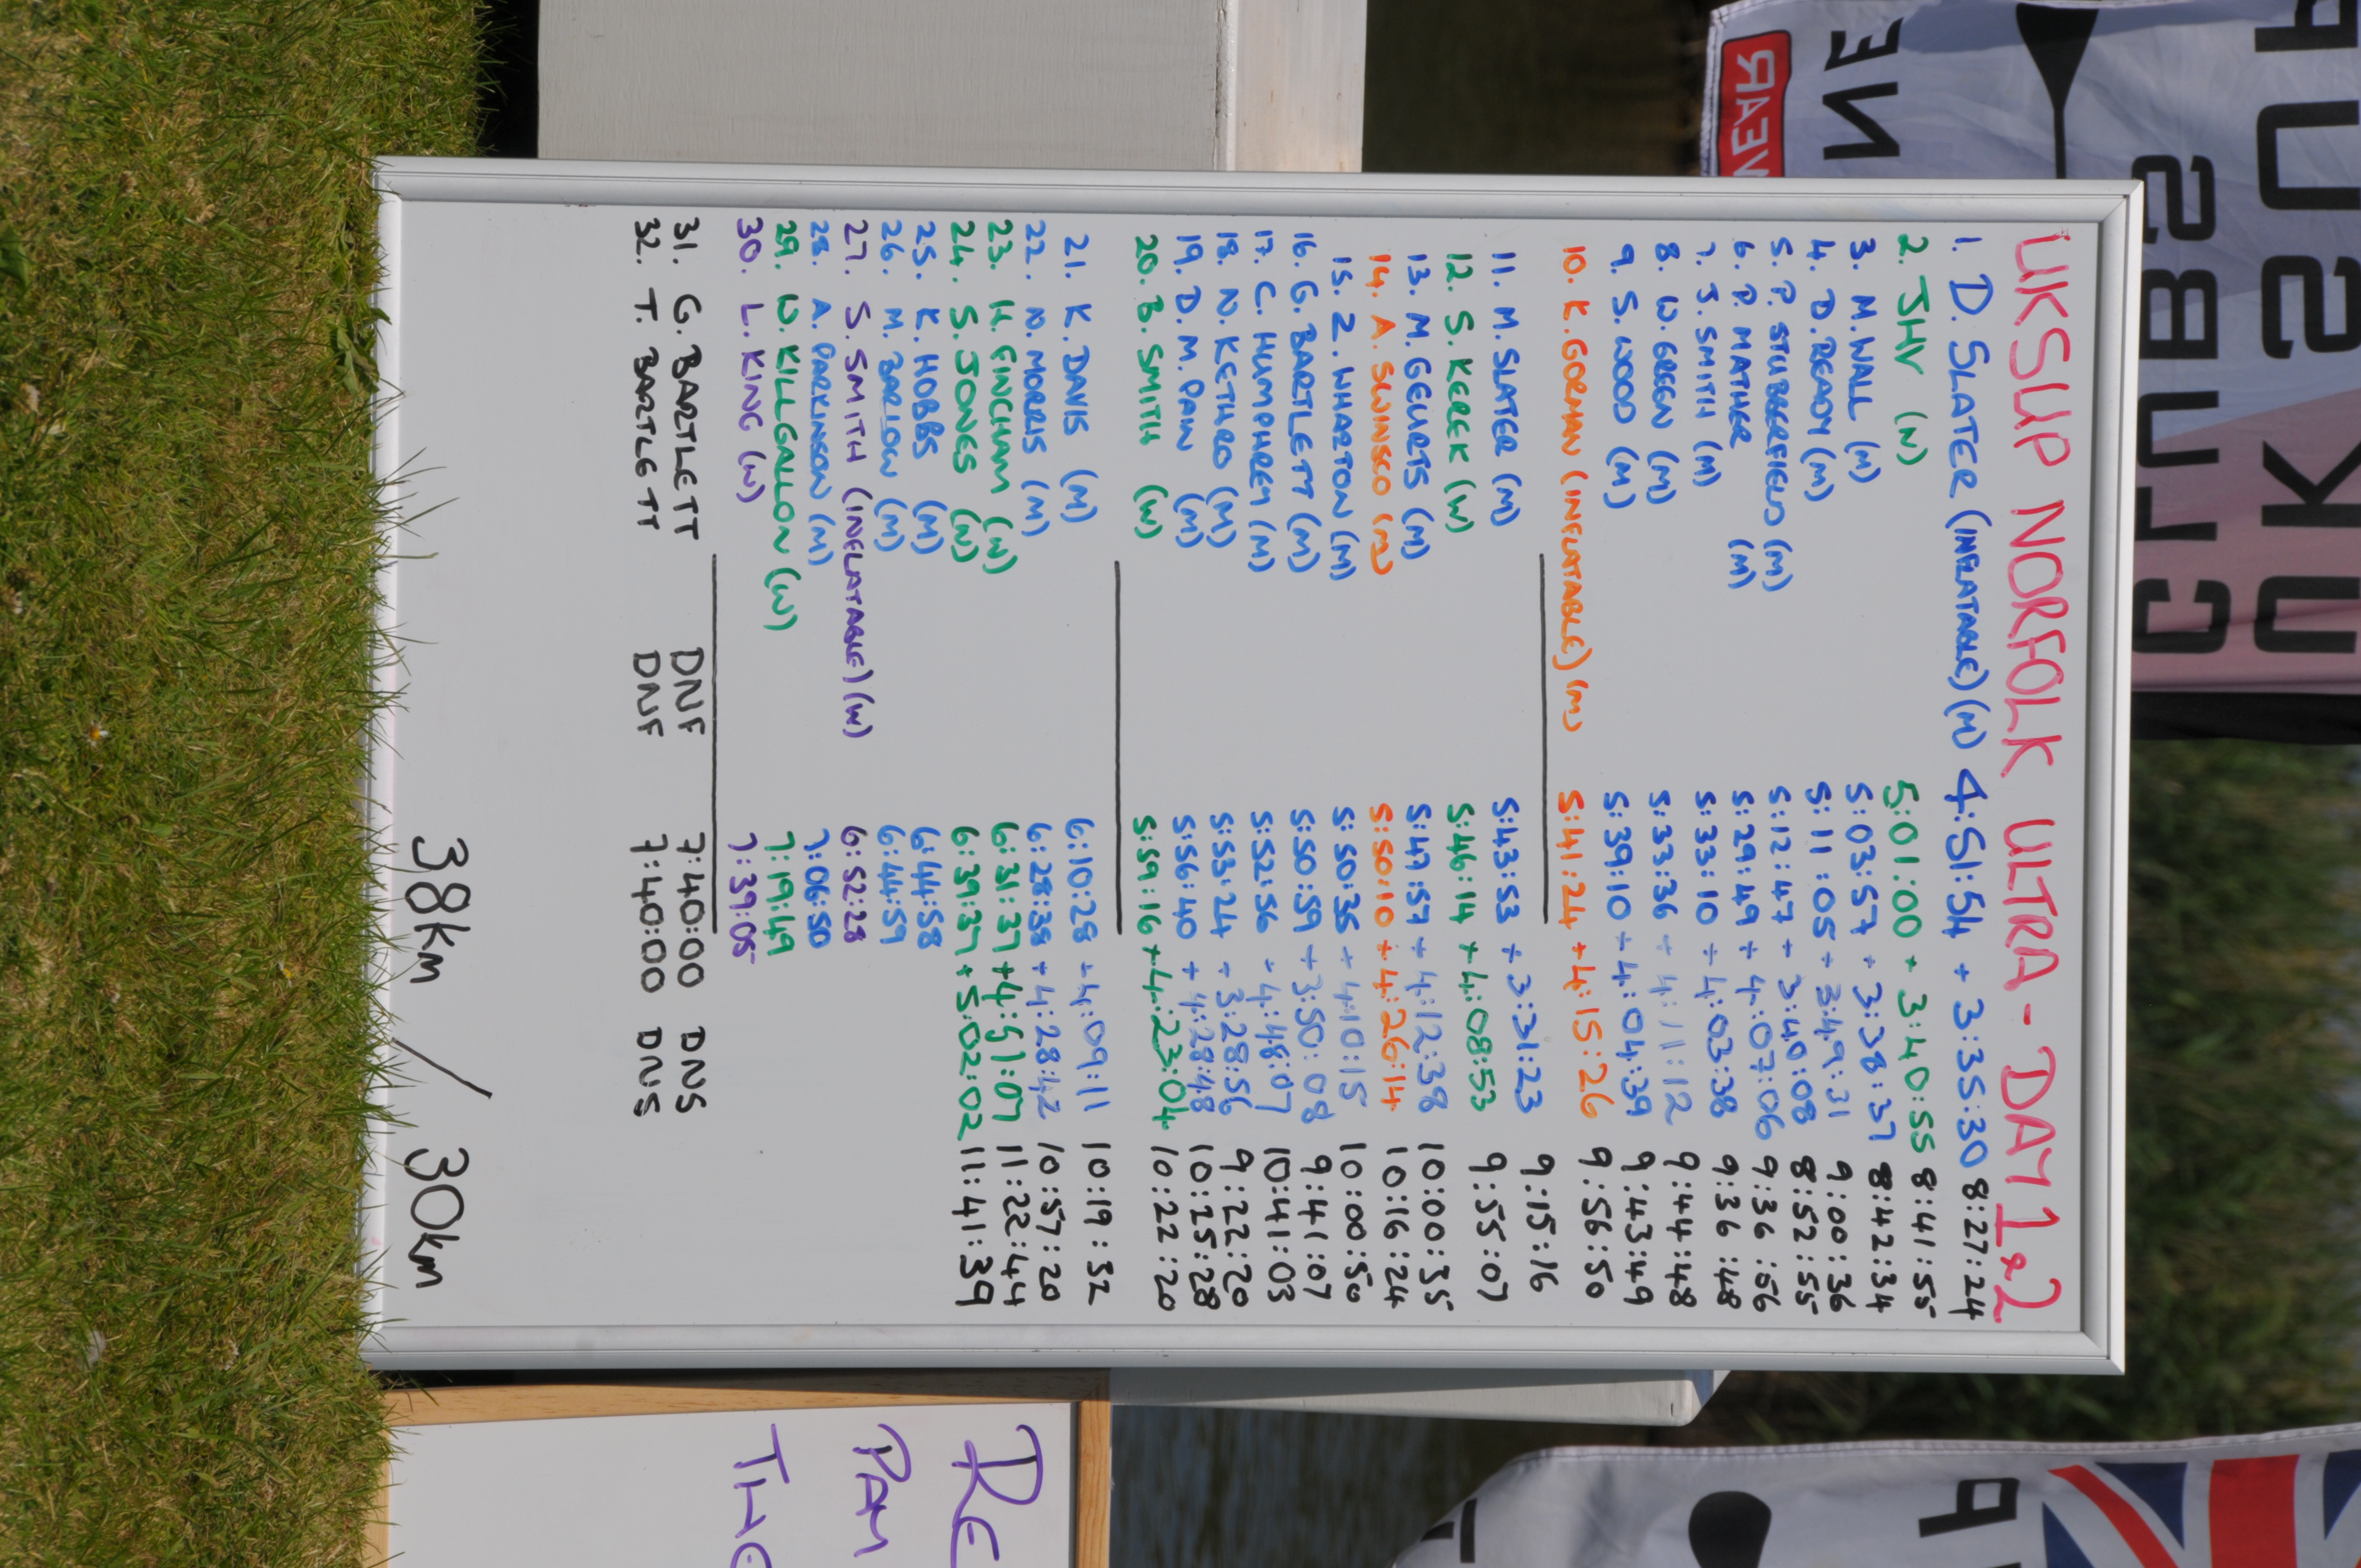 UKSUP NORFOLK ULTRA - DAY 1 & 2
1. D. SLATER (INFLATABLE) (M) 4:51:54 + 3:35:30 8:27:24
2. JHV (W) 5:01:00 + 3:40:55 8:41:55
3. M. WALL (M) 5:03:57 + 3:38:37 8:42:34
4. D. READY (M) 5:11:05 + 3:49:31 9:00:36
5. P. STUBBERFIELD (M) 5:12:47 + 3:40:08 8:52:55
6. P. MATHER (M) 5:29:49 + 4:07:06 9:36:56
7. J. SMITH (M) 5:33:10 + 4:03:38 9:36:48
8. W. GREEN (M) 5:33:36 + 4:11:12 9:44:48
9. S. WOOD (M) 5:39:10 + 4:04:39 9:43:49
10. K. GORMAN (INFLATABLE) (M) 5:41:24 + 4:15:26 9:56:50
11. M. SLATER (M) 5:43:53 + 3:31:23 9:15:16
12. S. KEREK (W) 5:46:14 + 4:08:53 9:55:07
13. M. GEURTS (M) 5:47:57 + 4:12:38 10:00:35
14. A. SWINSCO (M) 5:50:10 + 4:26:14 10:16:24
15. Z. WHARTON (M) 5:50:35 + 4:10:15 10:00:50
16. G. BARTLETT (M) 5:50:59 + 3:50:08 9:41:07
17. C. HUMPHREY (M) 5:52:56 + 4:48:07 10:41:03
18. N. KETHRO (M) 5:53:24 + 3:28:56 9:22:20
19. D. M. PAW (M) 5:56:40 + 4:28:48 10:25:28
20. B. SMITH (W) 5:59:16 + 4:23:04 10:22:20
21. K. DAVIS (M) 6:10:28 + 4:09:11 10:19:32
22. N. MORRIS (M) 6:28:38 + 4:28:42 10:57:20
23. H. FINCHAM (W) 6:31:37 + 4:51:07 11:22:44
24. S. JONES (W) 6:39:37 + 5:02:02 11:41:39
25. K. HOBBS (M) 6:44:58
26. M. BARLOW (M) 6:44:59
27. S. SMITH (INFLATABLE) (W) 6:52:28
28. A. PARKINSON (M) 7:06:50
29. W. KILLGALLON (W) 7:19:49
30. L. KING (W) 7:39:05
31. G. BARTLETT DNF 7:40:00 DNS
32. T. BARTLETT DNF 7:40:00 DNS
38km / 30km
RE
PAM
THE